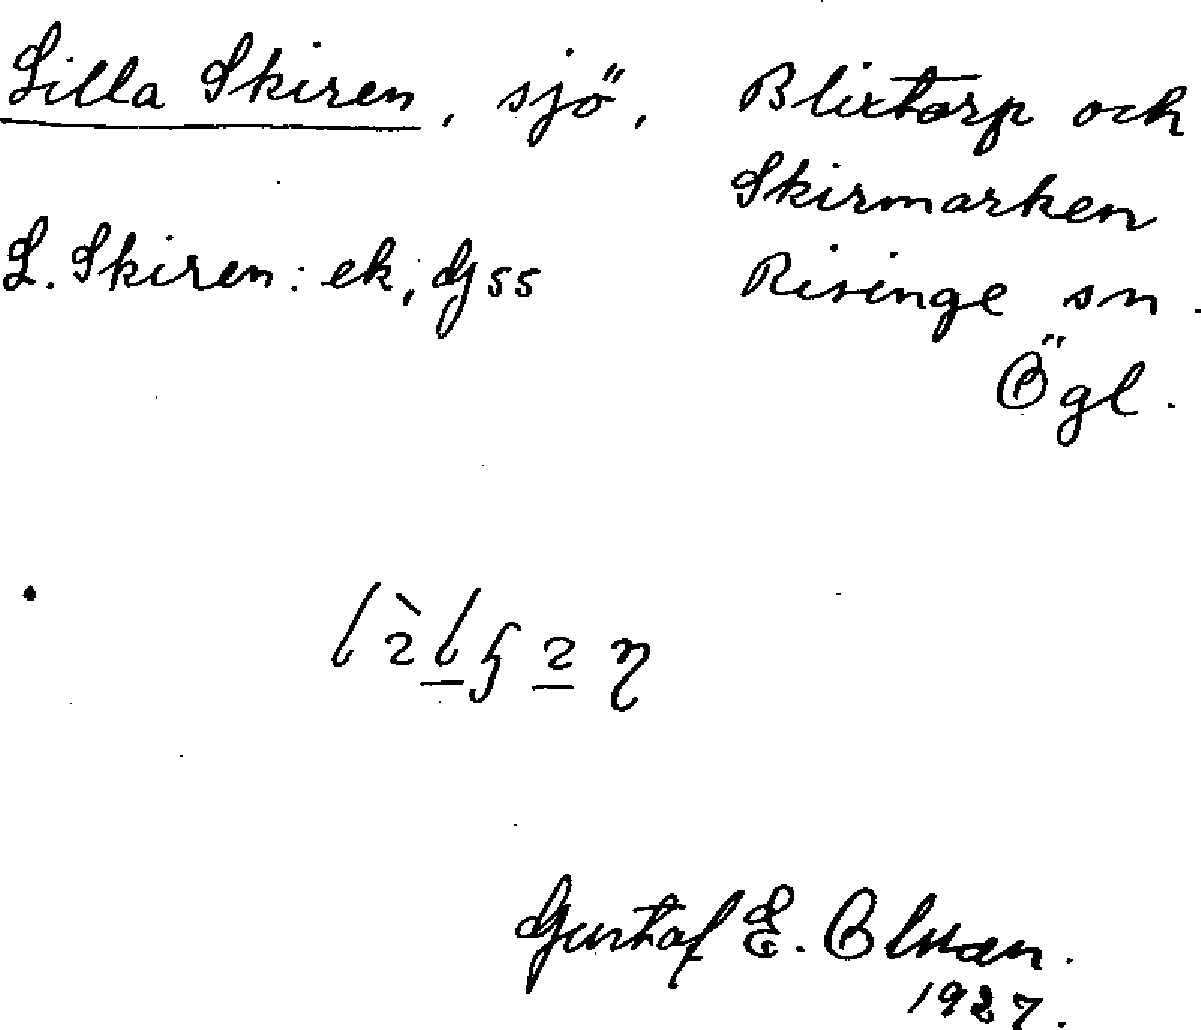 Lilla Skiren, sjö, Blixtorp och
Skirmarken
L. Skiren: ek, Gss Risinge sn.
Ögl.
Gustaf E. Olsson.
1927.